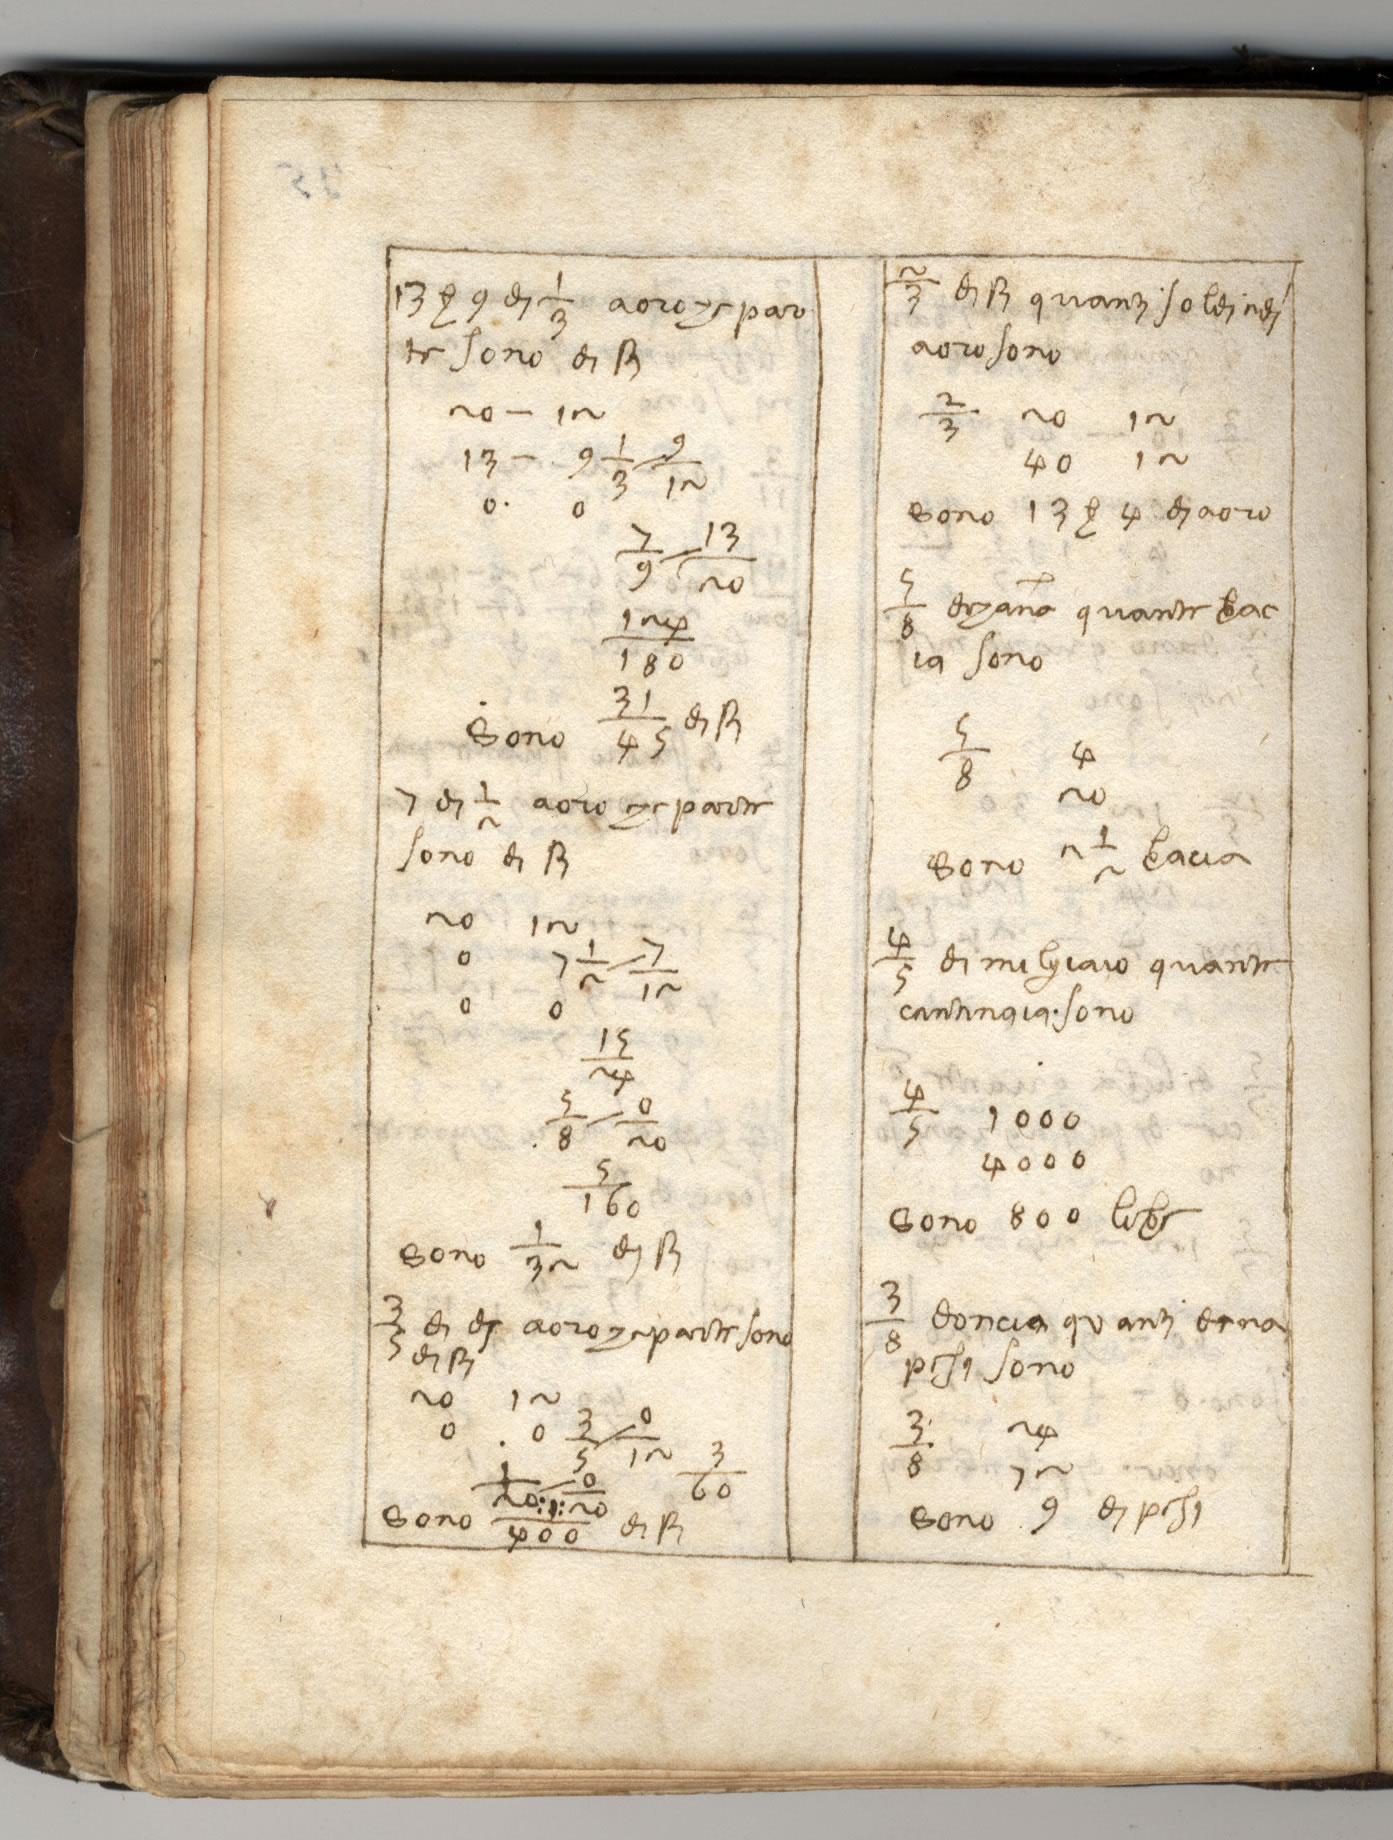 13 β 9 di 1/3 aoro che par
te sono di ſſ
20 – 12
13 – 9 1/3 9/12
0 0
7/9 13/20
124/180
Sono 31/45 di ſſ
7 di 1/2 aoro che parte
sono di ſſ
20 12
0 7 1/2 7/12
0 0
15/24
5/8 0/20
5/160
Sono 1/32 di ſſ
3/5 di di aoro che parte sono
di ſſ
20 12
0 0 3/5 0/12
3/60
1/20 0/20
Sono 1/400 di ſſ
2/3 di ſſ quanti soldi edi
aoro sono
2/3 20 12
40 12
Sono 13 β 4 di aoro
5/8 di chana quante bac
ia sono
5/8 4
20
Sono 2 1/2 bacia
4/5 di milgiaio quante
centinaia sono
4/5 1000
4000
Sono 800 libre
3/8 doncia quanti dena
pesi sono
3/8 24
72
Sono 9 di pesi